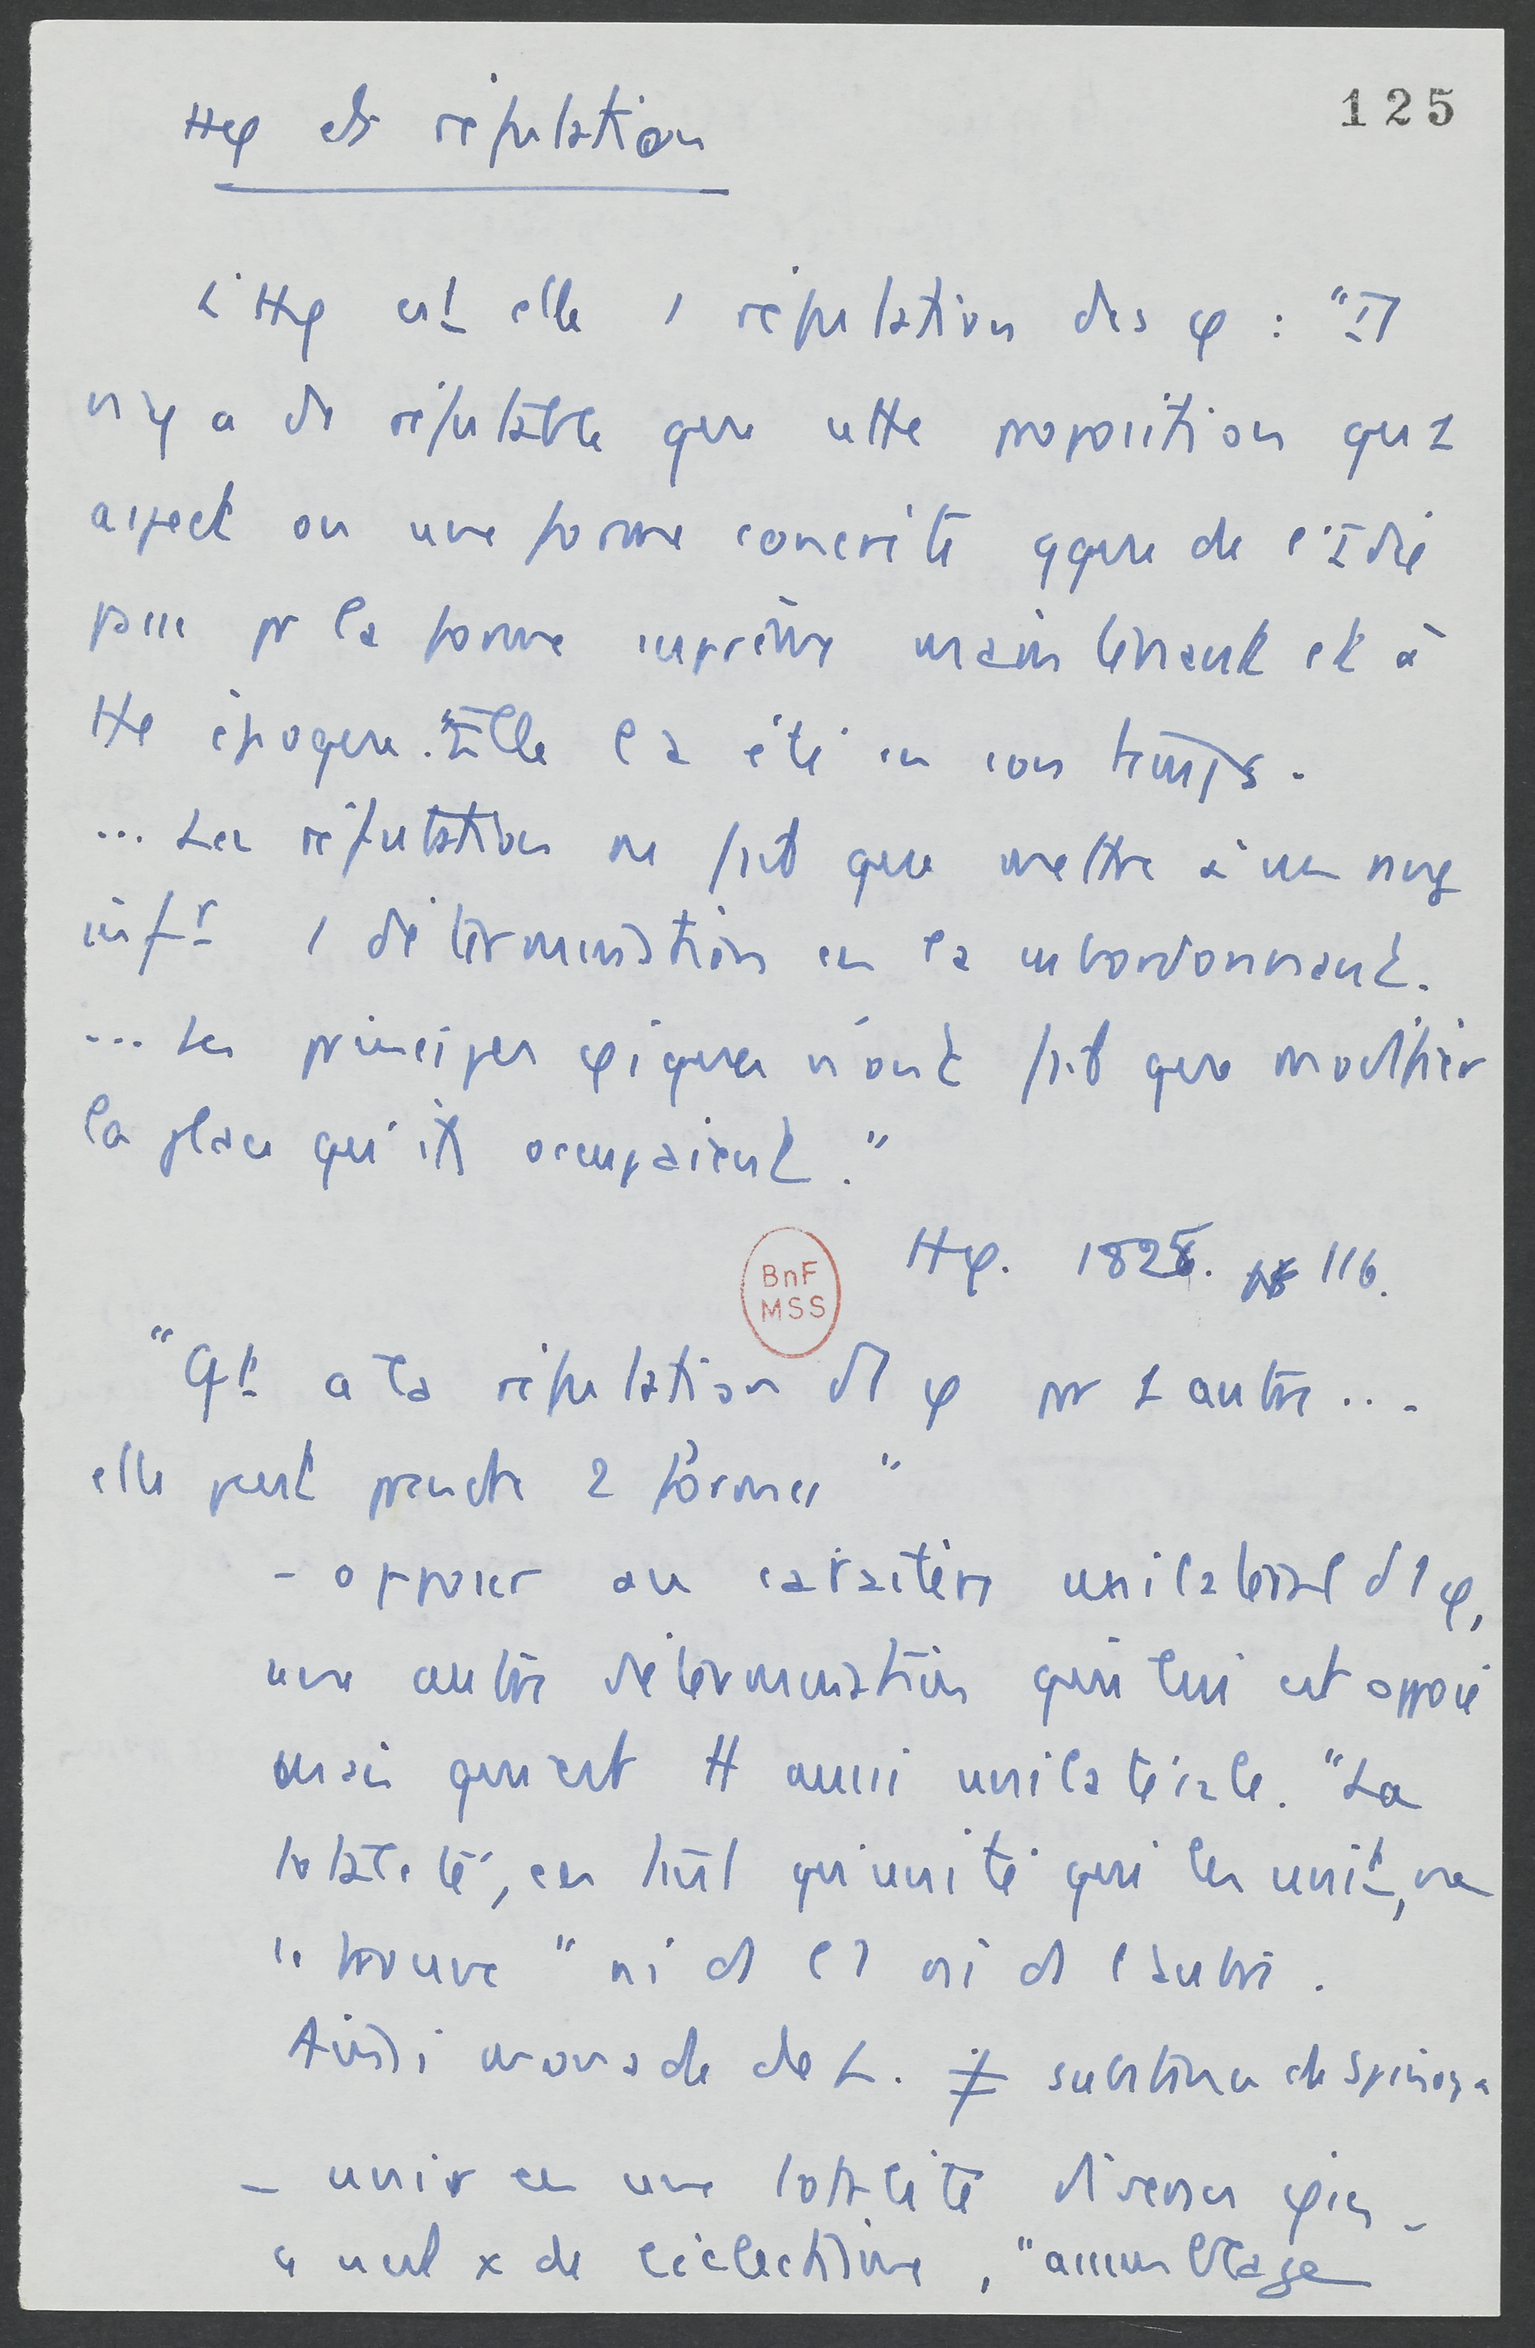 125
Hφ et réfutation
L'Hφ est elle 1 réfutation des φ : "Il
n'y a de réfutable que cette proposition qu'1
aspect ou une forme concrète qque de l'Idée
passe pr la forme suprême maintenant et à
tte époque. "Elle l'a été en son temps.
... Les réfutations ne font que mettre à un rang
infr 1 détermination en la subordonnant.
... Les principes φiques n'ont fait que modifier
la place qu'ils occupaient."
Hφ. 1825. 116.
BnF
MSS
"Qt a la réfutation d'1 φ par 1 autre ...
elle peut prendre 2 formes"
- opposer au caractère unilatéral d'1 φ,
une autre détermination qui lui est opposée
mais qui est tt aussi unilatérale. "La
totalité, en tant qu'unité qui les unit, ne
se trouve" ni ds l'1 ni ds l'autre.
Ainsi monade de L. ≠ substance de Spinoza
- unir en une totalité diverses φies -
c'est x de l'éclectisme, "assemblage